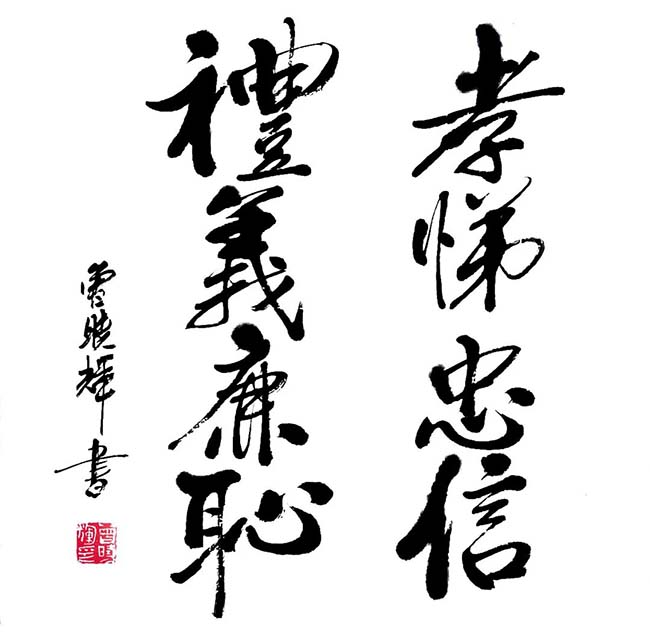 孝悌忠信
禮義廉恥
曾曉輝書